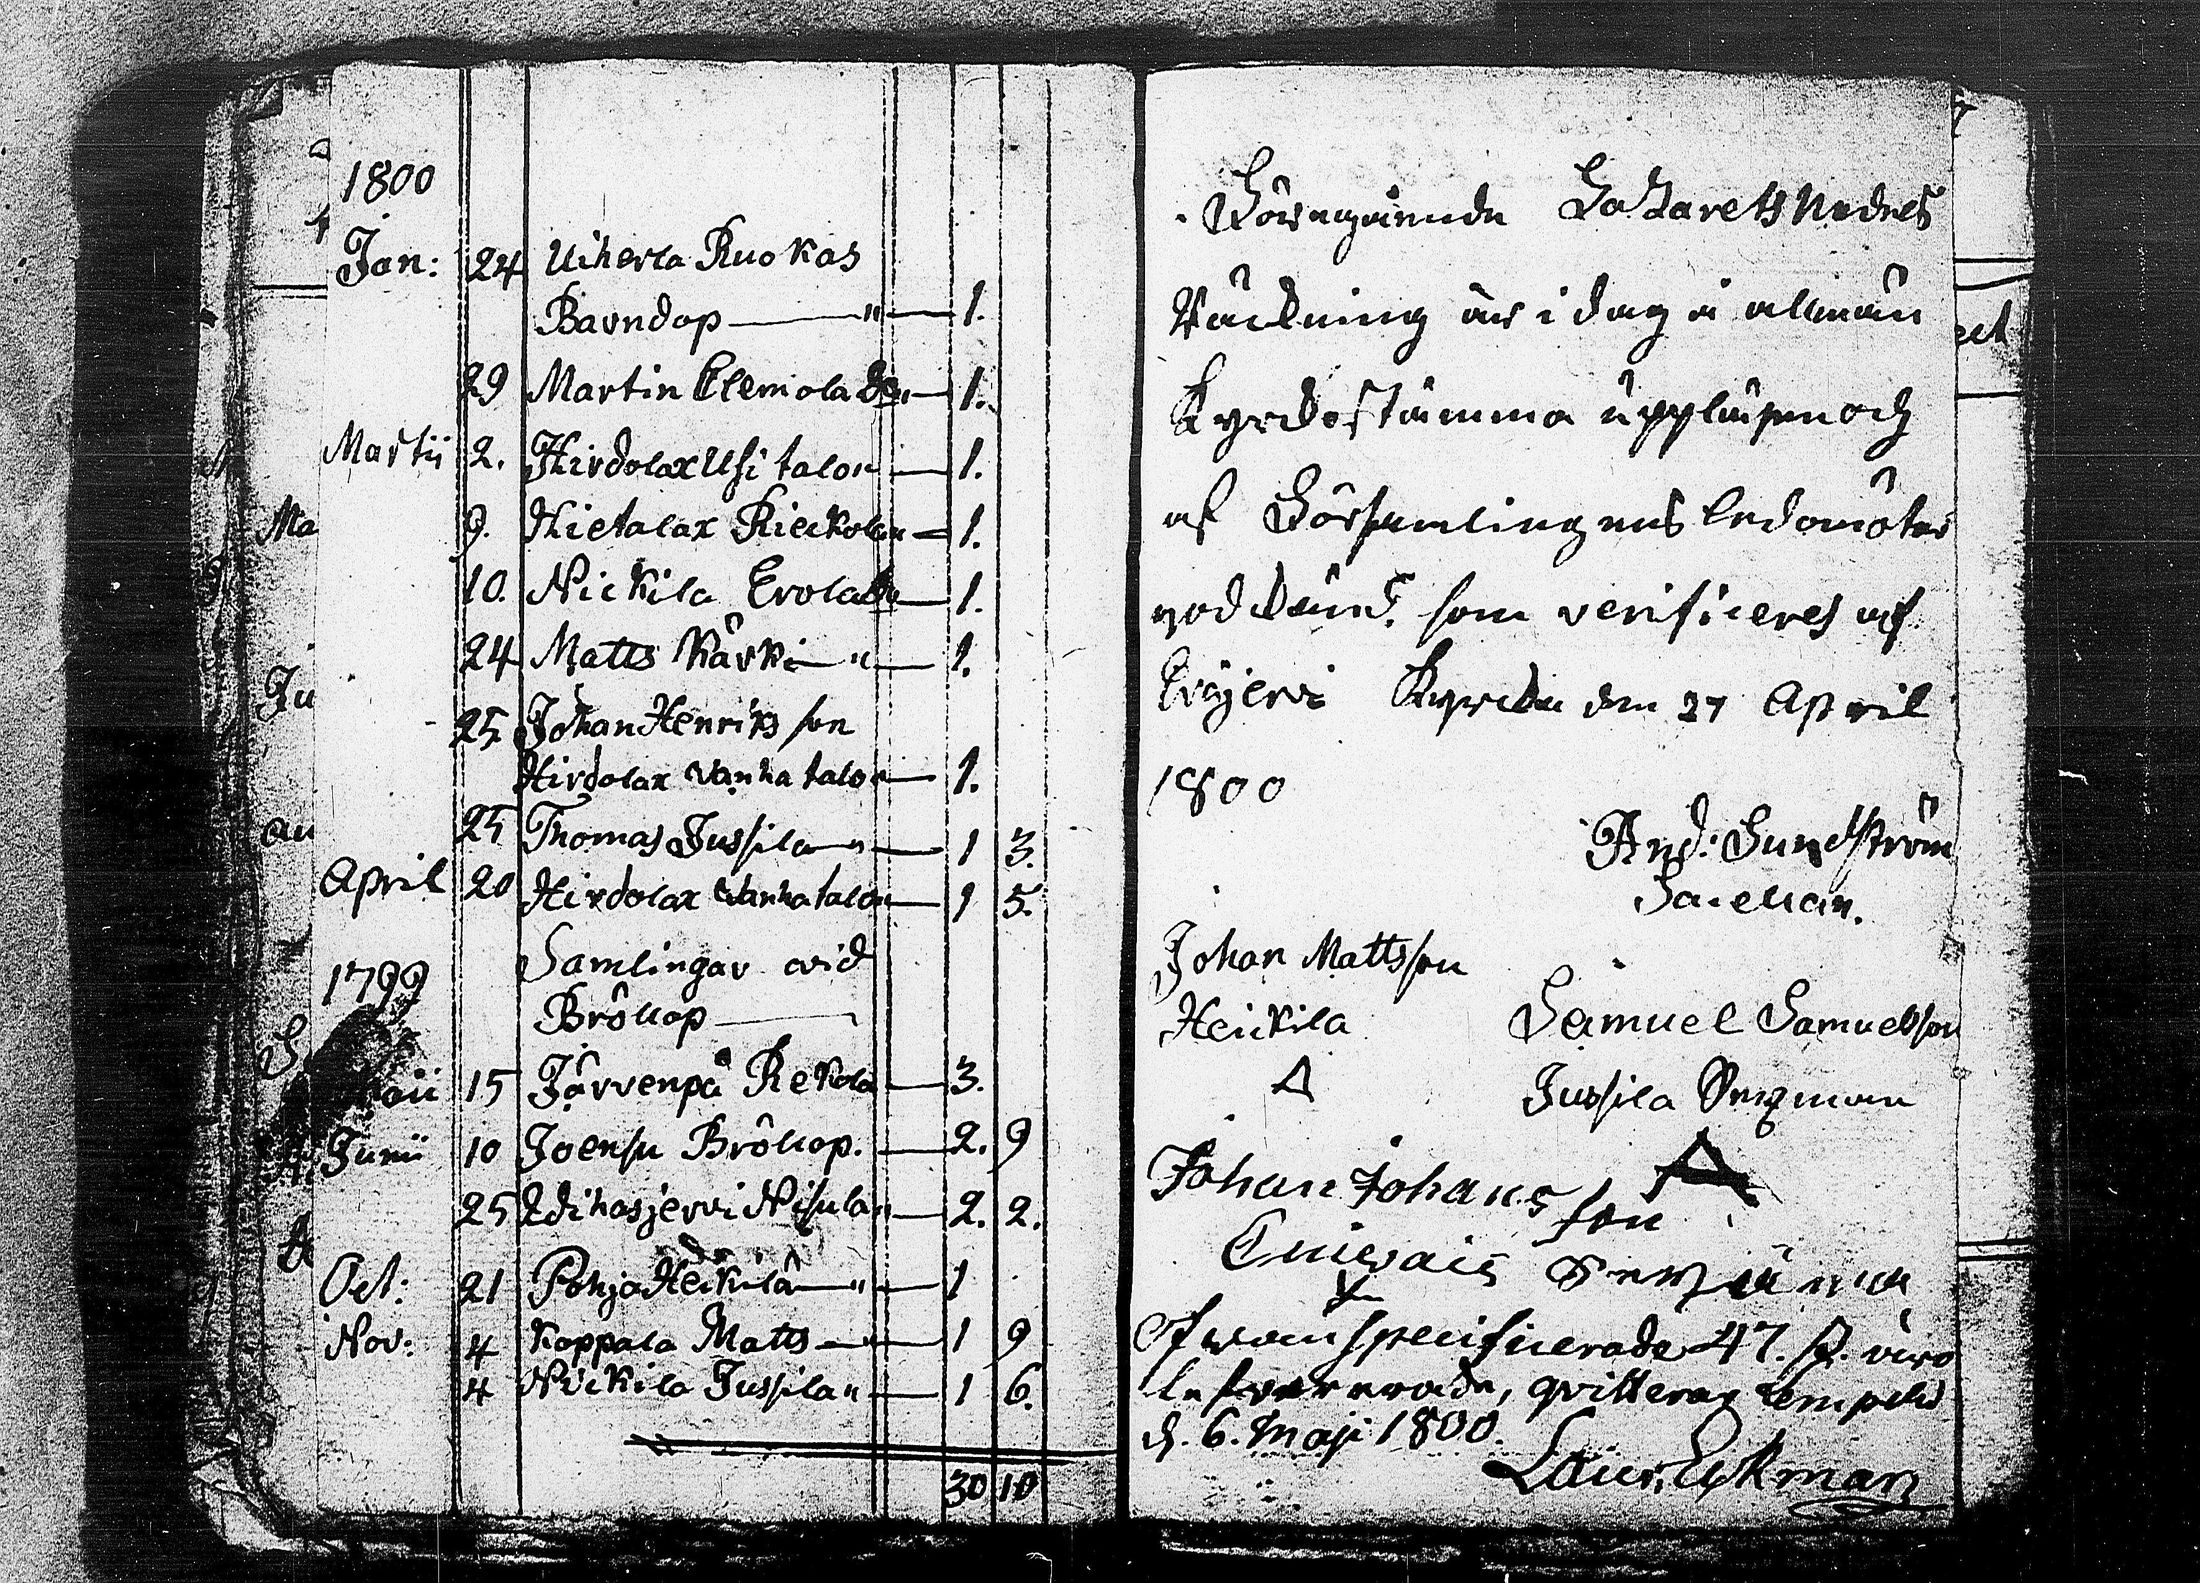 1800
Jan: 24 Uiherla Ruokas
Barndop — " — 1.
29 Martin Elemola do — 1.
Martii 2. Hirdolax Usi talo " — 1.
9. Hietalax Rieckola " — 1.
10. Nickila Erola do — 1.
24 Matts Kärki — " — 1.
25 Johan Henriksson
Hirdolax Vanha talo " — 1.
25 Thomas Jussila " — 1 3.
April 20 Hirdolax Wanha talo " — 1 5.
1799 Samlingar wid
Bröllop —
Maii 15 Järvenpä Rekola — 3.
Junii 10 Joensu Bröllop. — 2. 9
25 jervi Nisula " — 2. 2.
Oct: 21 Pohja Heikilä — " — 1
Nov: 4 Koppala Matts — " — 1 9
4 Nickila Jussila " — 1 6.
30 10
Föregående Lazarets Medels
Räckning är i dag å allmän
Kyrckostämma uppläsen och
af Församlingens Ledamöter
godkänd, som verificeres af
Evijervi Kyrcka den 27 April
1800
And: Sundström
Sacellan.
Johan Mattsson
Heickila
Samuel Samuelsson
Jussila
Johan Johansson
ofwanspecificerade 47. ß. äro
lefwererade, qvitteras Lempelä
d. 6. Maji 1800.
Laur. Eckman